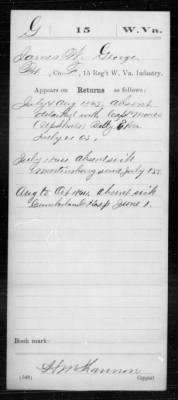 G 15 W. Va.
James W. George
, Co. F, 15 Reg't W. Va. Infantry.
Appears on Returns as follows:
July & Aug 1863, absent
detached with Capt
Battery
July 21. 63.
July 1864 absent sick
Martinsburg since July 1st
Aug to Oct 1864 absent sick
Cumberland Hosp June 1.
Book mark:
(546) Copyist.